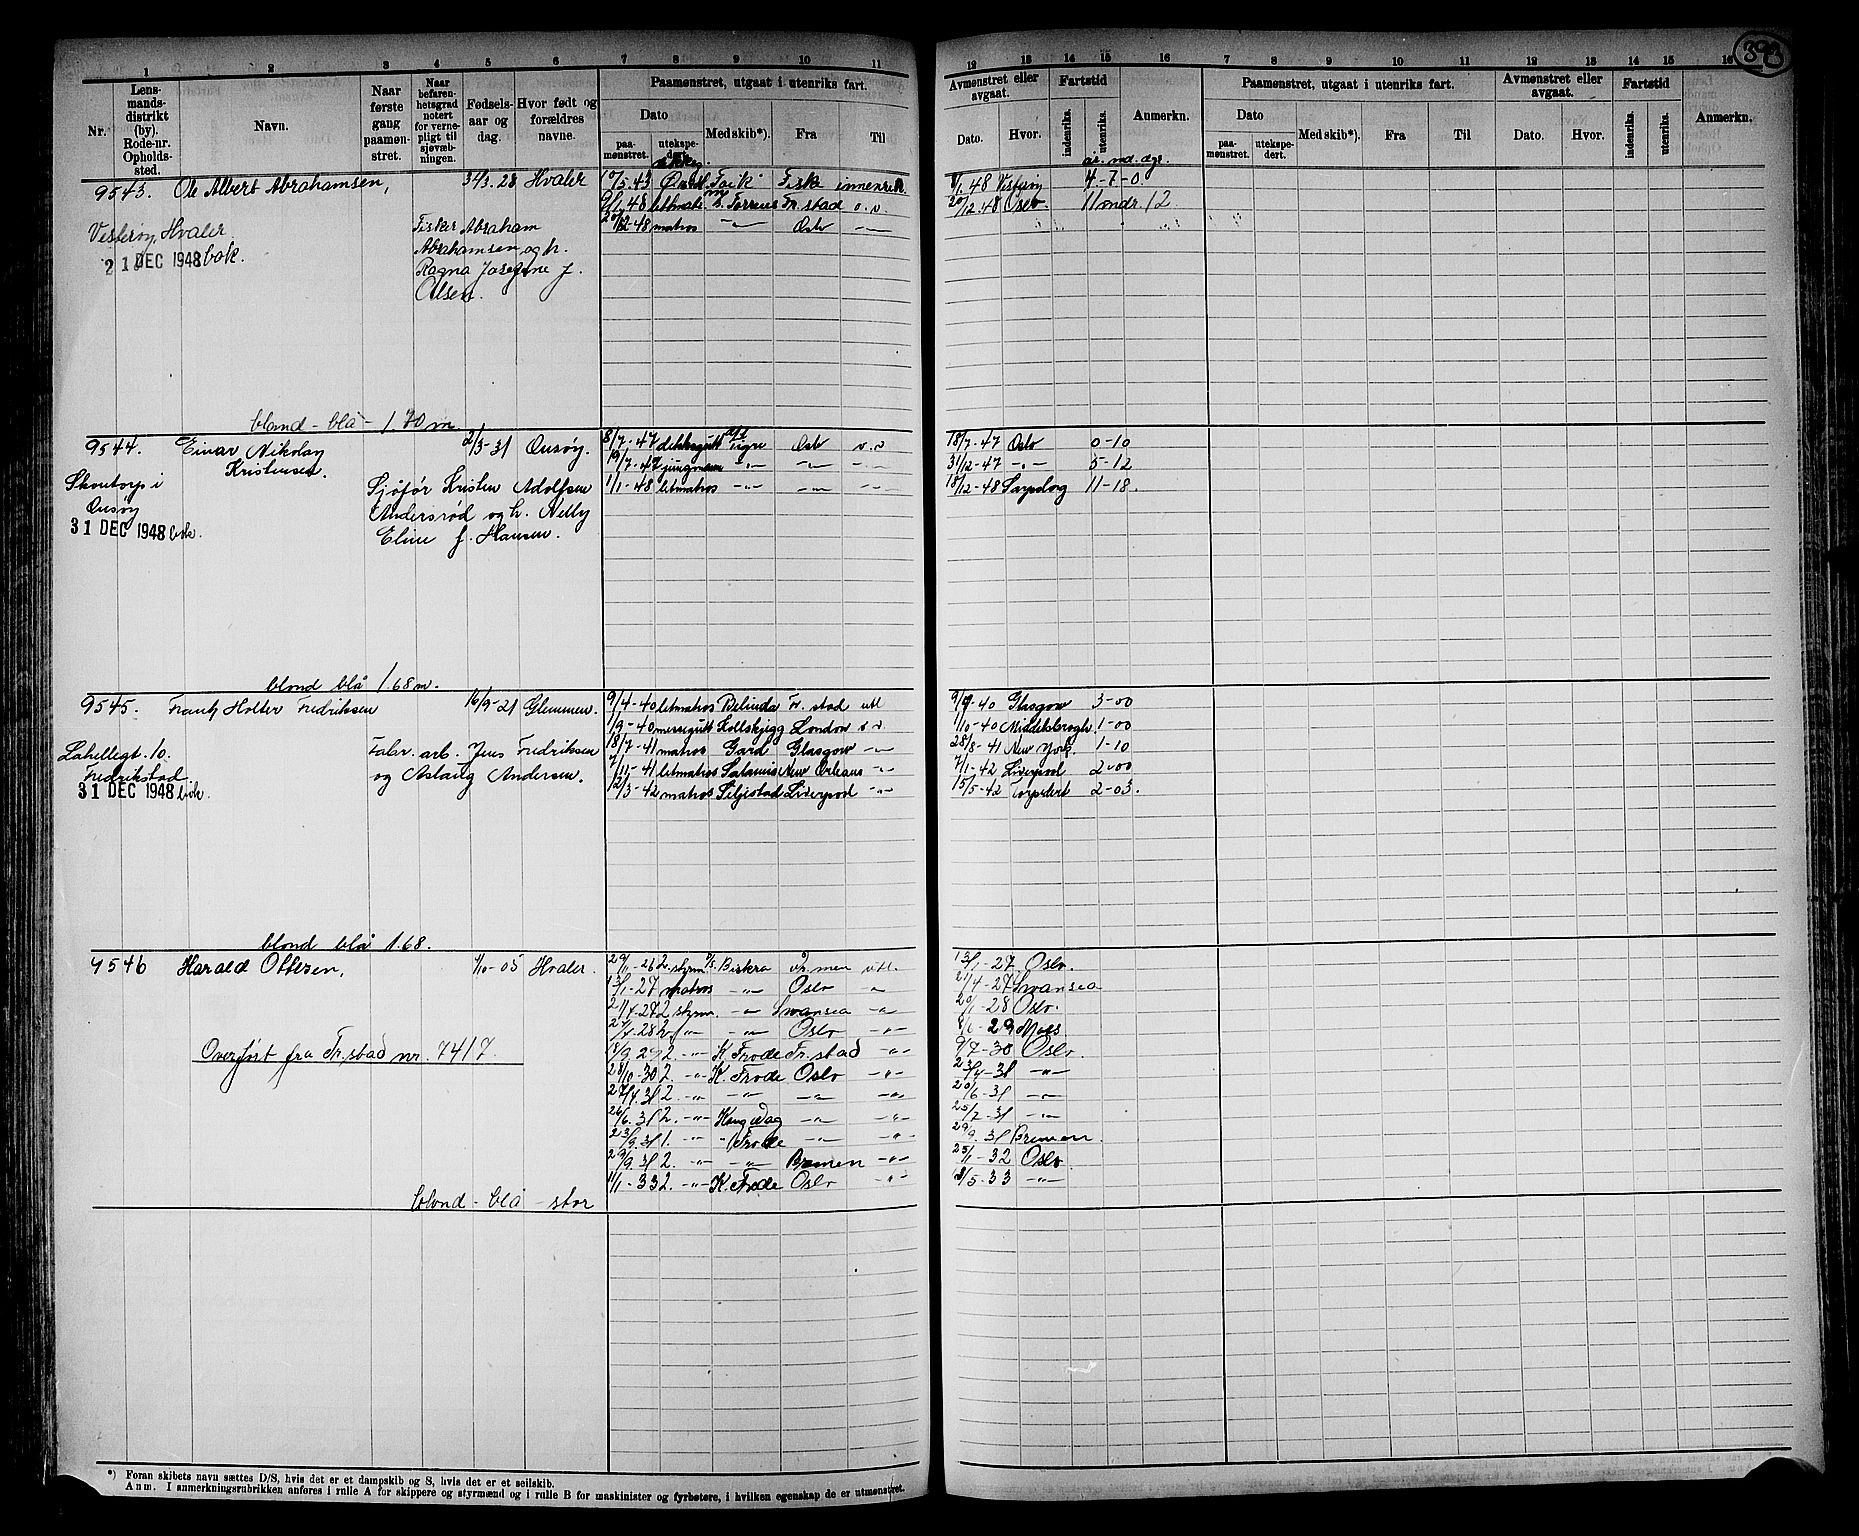 393
1 2 3 4 5 6 7 8 9 10 11
12 13 14 15 16 7 8 9 10 11 12 13 14 15 16
Nr.
Lens-
mands-
distrikt
(by).
Rode-nr.
Opholds-
sted.
Navn.
Naar
første
gang
paamøn-
stret.
Naar
befaren-
hetsgrad
notert
for verne-
pligt til
sjøvæb-
ningen.
Fødsels-
aar og
dag.
Hvor født og
forældres
navne.
Paamønstret, utgaat i utenriks fart.
Dato
paa-
mønstret.
utekspe-
dert.
Med skib*).
Fra
Til
Avmønstret eller
avgaat.
Dato.
Hvor.
Fartstid
indenriks.
utenriks.
Anmerkn.
Paamønstret, utgaat i utenriks fart.
Dato
paa-
mønstret.
utekspe-
dert.
Med skib*).
Fra
Til
Avmønstret eller
avgaat.
Dato.
Hvor.
Fartstid
indenriks.
utenriks.
Anmerkn.
år. md. dge.
9543. Ole Albert Abrahamsen, 3/3.28 Hvaler 10/5.43 Fisk innenrik 1/1.48 Vesterøy 4-7-0.
9/1.48 letmatr. Torrens Fr.stad o.v 20/12.48 Oslo. 11 mdr 12
Vesterøy, Hvaler. Fisker Abraham 20/12-48 matros -"- Oslo -"-
21 DEC 1948 bok. Abrahamsen og h.
Ragna Josefine f.
Olsen.
blond - blå - 1.70 m
9544. Einar Nikolay 2/3-31 Onsøy. 8/7-47 dekksgutt Tigre Oslo v.v 18/7-47 Oslo 0-10
Kristensen. 19/7-47 jungmann -"- -"- -"- 31/12-47 -"- 5-12
Skontorp i Sjåfør Kristen Adolfsen 1/1-48 letmatros -"- -"- -"- 18/12-48 Sarpsborg 11-18.
Onsøy Andersrød og h. Nelly
31 DEC 1948 bok. Eline f. Hansen.
blond blå 1.68 m.
9545. Frank Holter Fredriksen 16/9-21 Glemmen. 9/4-40 letmatros Belinda Fr.stad utl 9/7-40 Glasgow 3-00
1/9-40 messegutt Kollskjegg London v.v. 1/10-40 Middelsbrogh 1-00
Labellegt. 10. Fabr. arb. Jens Fredriksen 18/7-41 matros Gard Glasgow -"- 28/8-41 New York. 1-10
Fredrikstad og Aslaug Andersen. 7/11-41 letmatros Salamis New Orleans -"- 7/1-42 Liverpool 2-00
31 DEC 1948 bok. 12/3-42 matros Siljestad Liverpool -"- 15/5-42 Torpedert 2-03.
blond blå 1.68.
9546 Harald Ottesen, 1/10-05 Hvaler. 29/11-26 2. styrm D/S. Biskra Dr.men utl. 13/1-27 Oslo.
13/1-27 matros -"- Oslo -"- 21/4-27 Swansea
21/4-27 2 styrm. -"- Swansea -"- 20/1-28 Oslo.
-"- -"- Oslo -"- 8/6-29 Moss
Overført fra Fr.stad nr. 7417. 18/9.29 2. -"- K. Frode Fr.stad -"- 9/7-30 Oslo.
28/10-30 2. -"- K. Frode Oslo -"- 23/4-31 -"-
27/4.31 2. -"- -"- -"- -"- 20/6-31 -"-
26/6.31 2. -"- Kong Dag -"- -"- 25/7-31 -"-
23/9.31 1. -"- " Frode -"- -"- 29/9.31 Bremen.
29/9.31 2. -"- -"- Bremen -"- 25/1-32 Oslo.
11/1-33 2. -"- K Frode Oslo -"- 12/5-33 -"-
blond - blå - stor
*) Foran skibets navn sættes D/S, hvis det er et dampskib og S, hvis det er et seilskib.
Anm. I anmerkningsrubrikken anføres i rulle A for skippere og styrmænd og i rulle B for maskinister og fyrbøtere, i hvilken egenskap de er utmønstret.